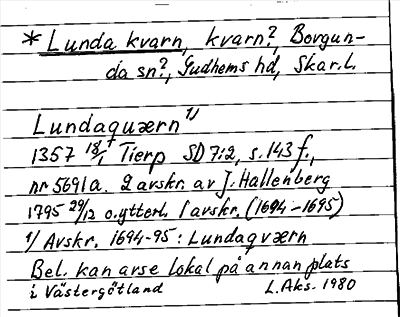 * Lunda kvarn, kvarn?, Borgun-
da sn?, Gudhems hd, Skar.l.
Lundaquærn 1)
1357 18/1 Tierp SD 7:2, s.143 f.,
nr 5691a. 2 avskr. av J. Hallenberg
1795 29/12 o. ytterl. 1 avskr. (1694-1695)
1/ Avskr. 1694-95: Lundaqværn
Bel. kan avse lokal på annan plats
i Västergötland L.Aks. 1980